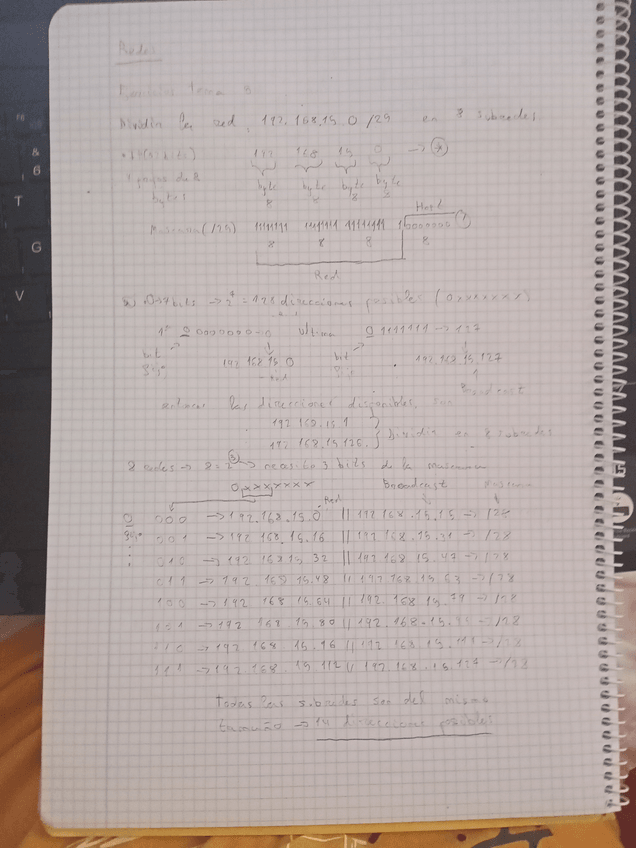 Redes
Tema 3
Dividir la red 192.168.15.0 /25 en 8 subredes
192 168 15 0 → *
grupos de 8
byte byte byte byte
8 8 8 8
bytes
Host
Mascara (/25) 11111111 11111111 11111111 10000000
8 8 8 8
Red
7 bits → 2^7 = 128 direcciones posibles (0xxxxxxx)
1ª Ultima 0 1111111 → 127
bit 192 168 15 0 bit 192 168 15 127
fijo fijo
Broadcast
entonces las direcciones disponibles son
192 168 15 1
192 168.15 126 } Dividir en 8 subredes
8 redes → 8 = 2^3 → necesito 3 bits de la mascara
0xxxxxxx Broadcast Mascara
Red
0 000 → 192.168.15.0 || 192 168.15.15 → /28
001 → 192 168.15.16 || 192 168.15.31 → /28
010 → 192 168 15 32 || 192 168 15.47 → /28
011 → 192 168 15.48 || 192 168 15 63 → /28
100 → 192 168 15.64 || 192.168 15 79 → /28
101 → 192 168 15.80 || 192.168.15. → /28
110 → 192 168 15.96 || 192 168.15. → /28
111 → 192 168 15 112 || 192 168.15. → /28
Todas las subredes son del mismo
tamaño → 14 direcciones posibles